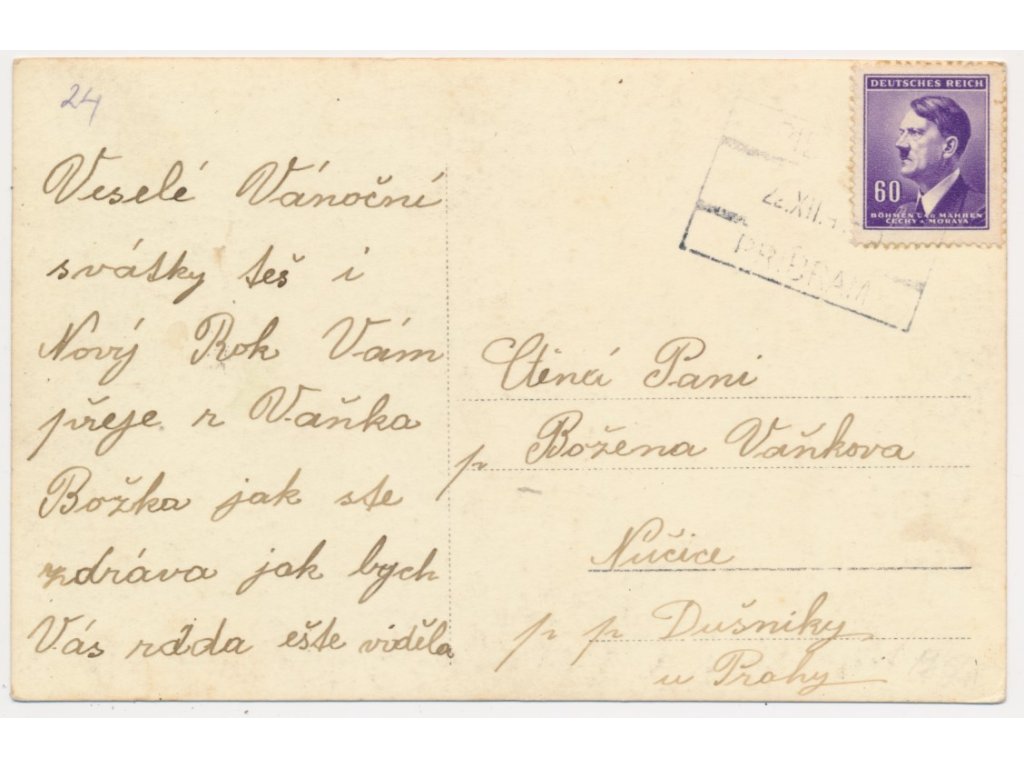 24
Veselé Vánoční
svátky teš i
Nový Rok Vám
přeje r Vaňka
Božka jak ste
zdráva jak bych
Vás ráda ešte viděla
DEUTSCHES REICH
60
BÖHMEN UND MÄHREN
ČECHY A MORAVA
22.XII.4
PŘÍBRAM
Ctěná Pani
p Božena Vaňkova
Nučice
p p Dušniky
u Prahy